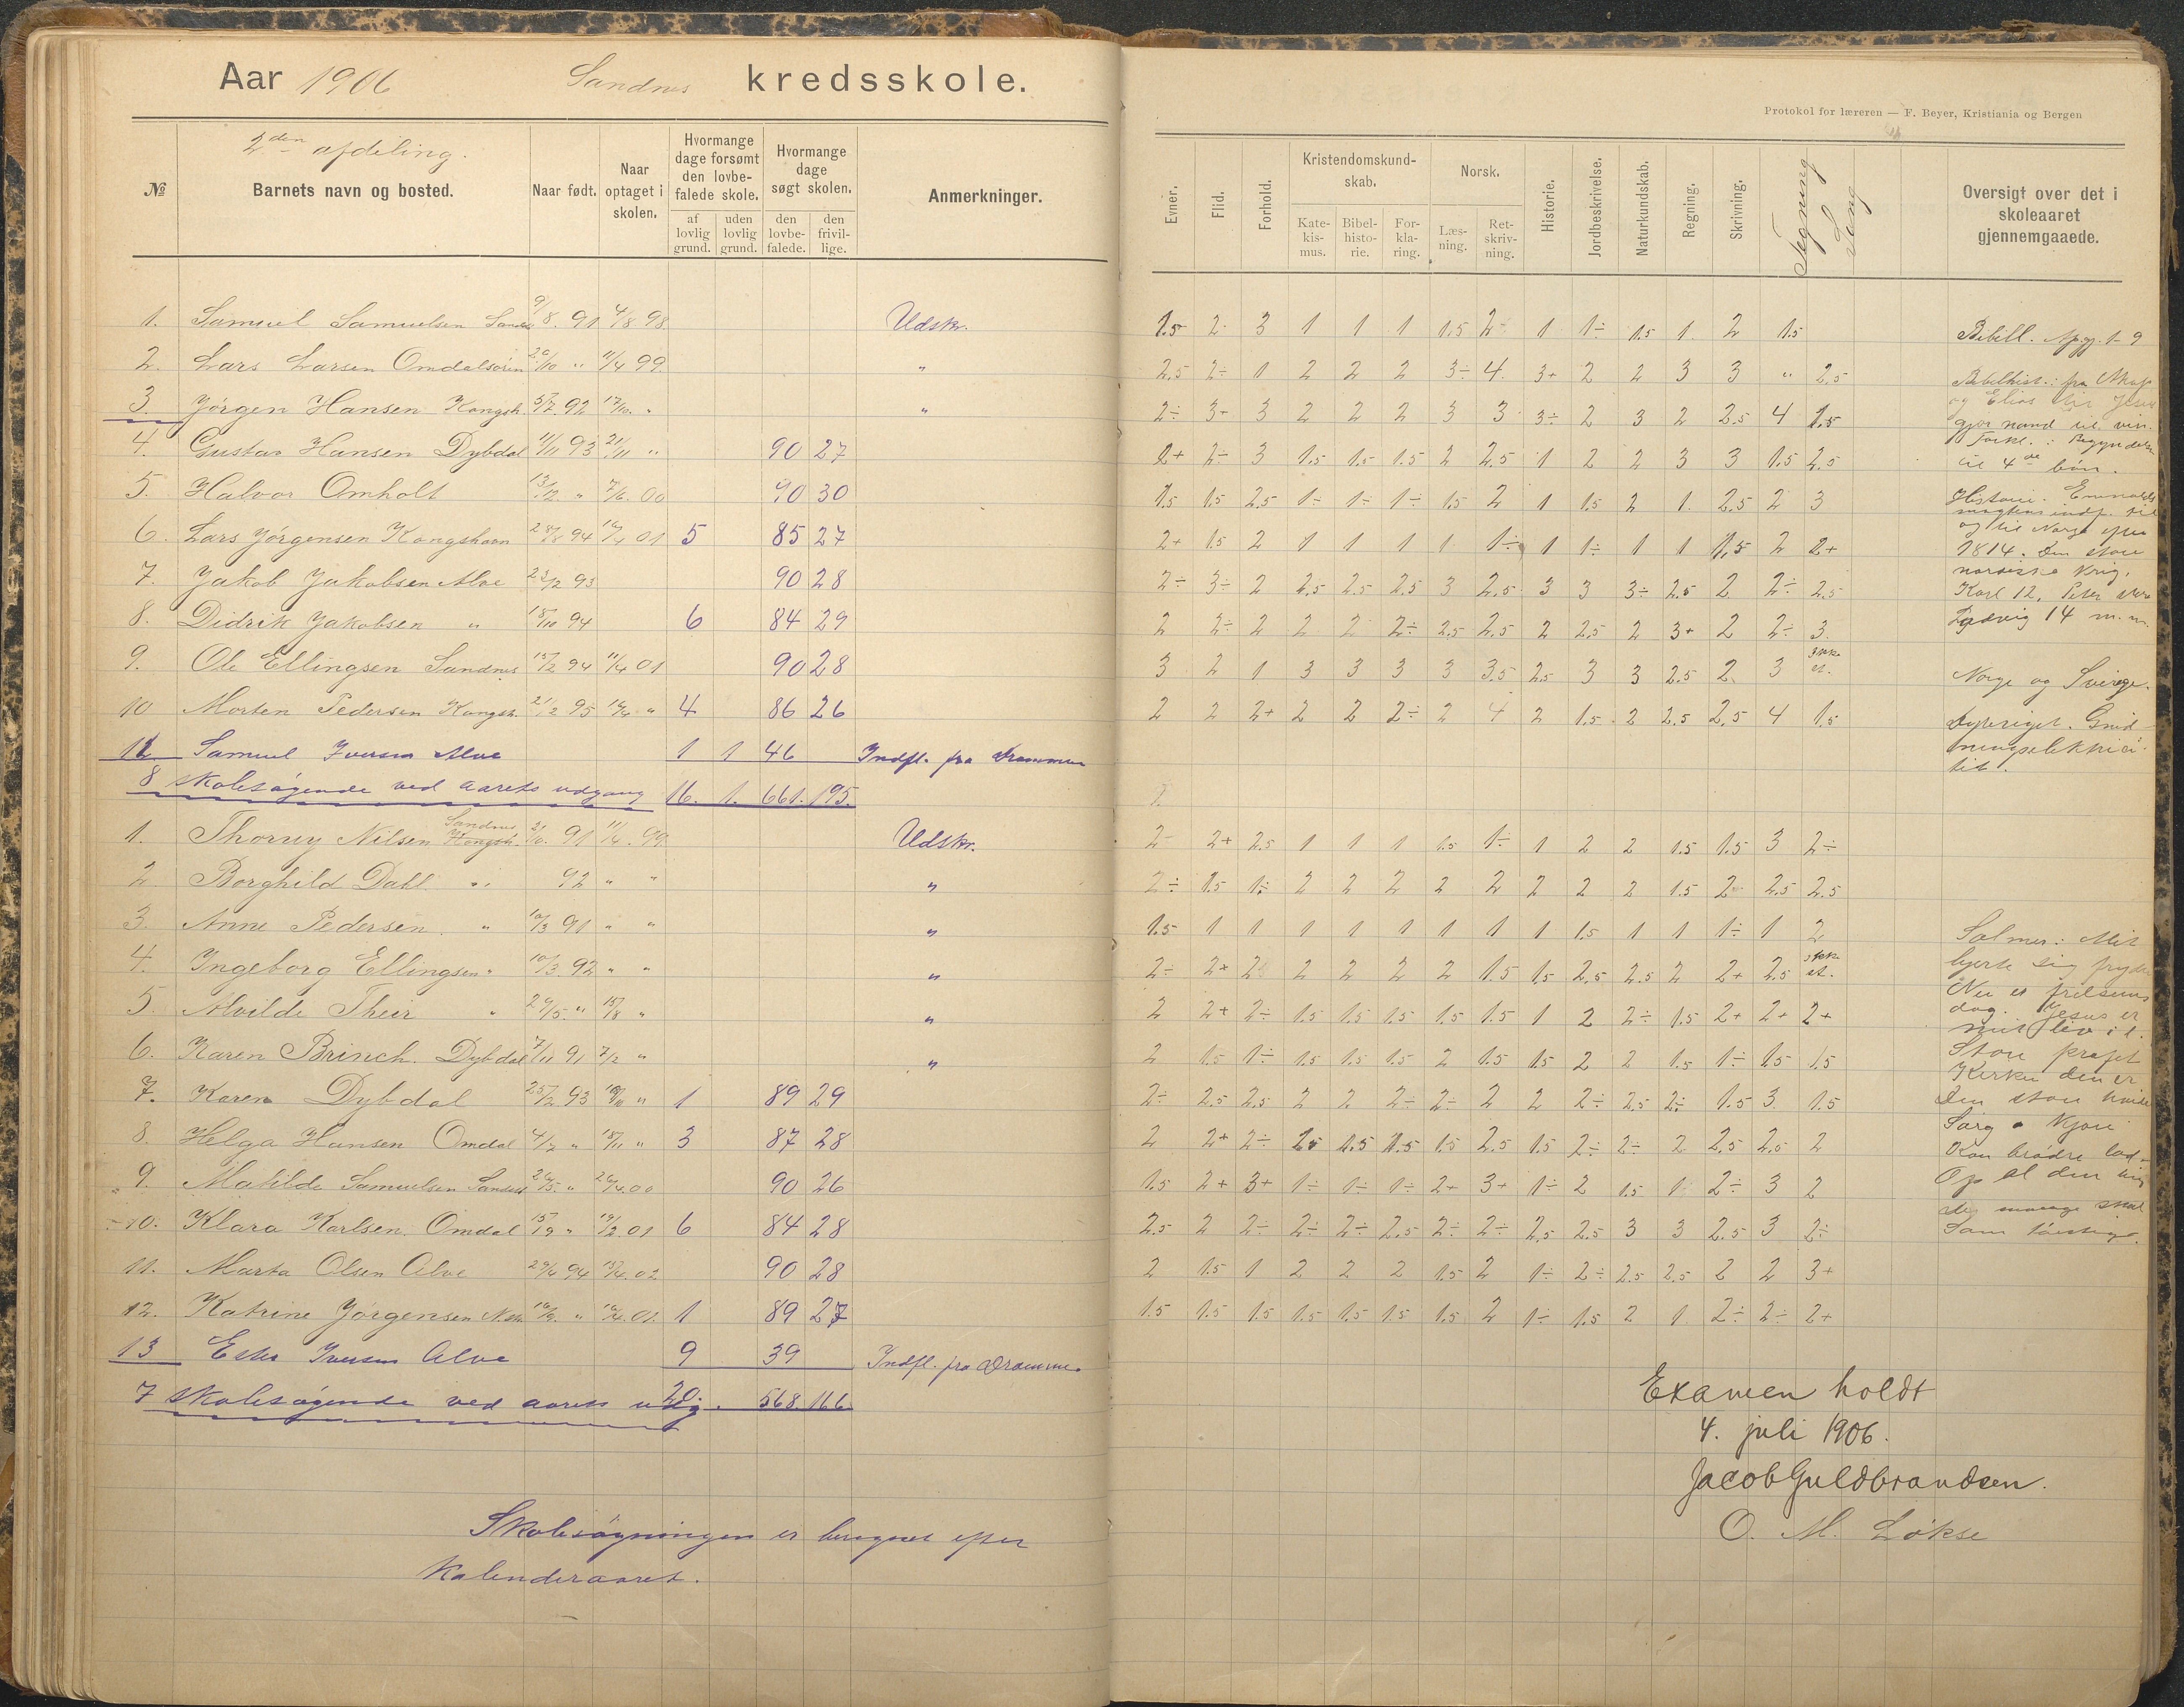 Aar 1906 Sandnes kredsskole.
Protokol for læreren — F. Beyer, Kristiania og Bergen
2den afdeling.
№ Barnets navn og bosted. Naar født. Naar optaget i skolen. Hvormange dage forsømt den lovbefalede skole. af lovlig grund. uden lovlig grund. Hvormange dage søgt skolen. den lovbefalede. den frivillige. Anmerkninger.
Evner. Flid. Forhold. Kristendomskundskab. Katekismus. Bibelhistorie. Forklaring. Norsk. Læsning. Retskrivning. Historie. Jordbeskrivelse. Naturkundskab. Regning. Skrivning. Tegning Sang Oversigt over det i skoleaaret gjennemgaaede.
1. Samuel Samuelsen Sandn 9/8 91 4/8 98 Udskr.
2. Lars Larsen Omdalsøren 29/10 " 11/4 99 "
3. Jørgen Hansen Kongsh. 5/7 92 17/10 " "
4. Gustav Hansen Dybdal 11/11 93 21/11 " 90 27
5. Halvor Omholt 13/12 " 7/6 00 90 30
6. Lars Jørgensen Kongshavn 28/8 94 16/4 01 5 85 27
7. Jakob Jakobsen Alve 23/2 93 90 28
8. Didrik Jakobsen " 18/10 94 6 84 29
9. Ole Ellingsen Sandnes 15/2 94 11/4 01 90 28
10 Morten Pedersen Kongsh. 21/2 95 16/4 " 4 86 26
11 Samuel Iversen Alve 1 1 46 Indfl. fra Drammen
8 skolesøgende ved aarets udgang 16. 1. 661. 195.
1. Thorny Nilsen Sandnes Kongsh. 2/10 91 11/4 99 Udskr.
2 Borghild Dahl " 92 " " "
3. Anne Pedersen " 10/3 91 " " "
4. Ingeborg Ellingsen " 10/3 92 " " "
5 Alvilde Their " 29/5 " 15/8 " "
6. Karen Brinch. Dybdal 7/11 91 7/2 " "
7. Karen Dybdal 25/2 93 18/11 " 1 89 29
8. Helga Hansen Omdal 4/7 " 18/11 " 3 87 28
9. Matilde Samuelsen Sandnes 26/5 " 26/4 00 90 26
10. Klara Karlsen. Omdal 15/9 " 19/2 01 6 84 28
11. Marta Olsen Alve 29/4 94 15/4 02 90 28
12. Katrine Jørgensen 10/9 " 16/4 01 1 89 27
13 Ester Iversen Alve 9 39 Indfl. fra Drammen
7 skolesøgende ved aarets udg. 20. 568. 166.
Skolesøgningen er beregnet efter
Kalenderaaret.
1.5 2 3 1 1 1 1.5 2 1 1÷ 1.5 1 2 1.5
2.5 2÷ 1 2 2 2 3÷ 4. 3+ 2 2 3 3 " 2.5
2÷ 3+ 3 2 2 2 3 3 3÷ 2 3 2 2.5 4 1.5
2+ 2÷ 3 1.5 1.5 1.5 2 2.5 1 2 2 3 3 1.5 2.5
1.5 1.5 2.5 1÷ 1÷ 1÷ 1.5 2 1 1.5 2 1 2.5 2 3
2+ 1.5 2 1 1 1 1 1÷ 1 1÷ 1 1 1,5 2 2+
2÷ 3÷ 2 2.5 2.5 2.5 3 2.5 3 3 3÷ 2.5 2 2÷ 2.5
2 2÷ 2 2 2 2÷ 2.5 2.5 2 2.5 2 3+ 2 2÷ 3.
3 2 1 3 3 3 3 3.5 2.5 3 3 2.5 2 3 ikke st.
2 2 2+ 2 2 2÷ 2 4 2 1.5 2 2.5 2.5 4 1.5
2 2+ 2.5 1 1 1 1.5 1÷ 1 2 2 1.5 1.5 3 2÷
2÷ 1.5 1÷ 2 2 2 2 2 2 2 2 1.5 2 2.5 2.5
1.5 1 1 1 1 1 1 1 1 1.5 1 1 1÷ 1 2
2÷ 2+ 2 2 2 2 2 1.5 1.5 2.5 2.5 2 2+ 2.5 ikke st.
2 2+ 2÷ 1.5 1.5 1.5 1.5 1.5 1 2 2÷ 1.5 2+ 2+ 2+
2 1.5 1÷ 1.5 1.5 1.5 2 1.5 1.5 2 2 1.5 1÷ 1.5 1.5
2÷ 2.5 2.5 2 2 2÷ 2÷ 2 2 2÷ 2.5 2÷ 1.5 3 1.5
2 2+ 2÷ 2.5 1.5 1.5 1.5 2.5 1.5 2÷ 2÷ 2 2.5 2.5 2
1.5 2+ 3+ 1÷ 1÷ 1÷ 2+ 3+ 1÷ 2 1.5 1 2÷ 3 2
2.5 2 2÷ 2÷ 2÷ 2.5 2÷ 2÷ 2.5 2.5 3 3 2.5 3 2÷
2 1.5 1 2 2 2 1.5 2 1÷ 2÷ 2.5 2.5 2 2 3+
1.5 1.5 1.5 1.5 1.5 1.5 1.5 2 1÷ 1.5 2 1 2÷ 2÷ 2+
Bibell. Apgj. 1-9
Bibelhist.: fra Akab
og Elias til Jesus
gjør vand til vin.
Forkl.: Begyndelsen
til 4de bøn.
Historie. Enevolds
magtens indf. til
og til Norge efter
1814. Den store
nordiske krig.
Karl 12, Peter store
Ludvig 14 m.m.
Norge og Sverige.
Dyreriget. Gnid
ningselektrici
tet.
Salmer: Mit
hjerte sig fryde
Nu er frelsens
dag. Jesus er
mit liv i l.
Store profet
Kirken den er
Den store hvide
Sorg o Kjøre
Kom brødre lad
Op al den ting
de mange skal
Som tørstige
Examen holdt
4. juli 1906.
Jacob Guldbrandsen.
O. M. Løkse